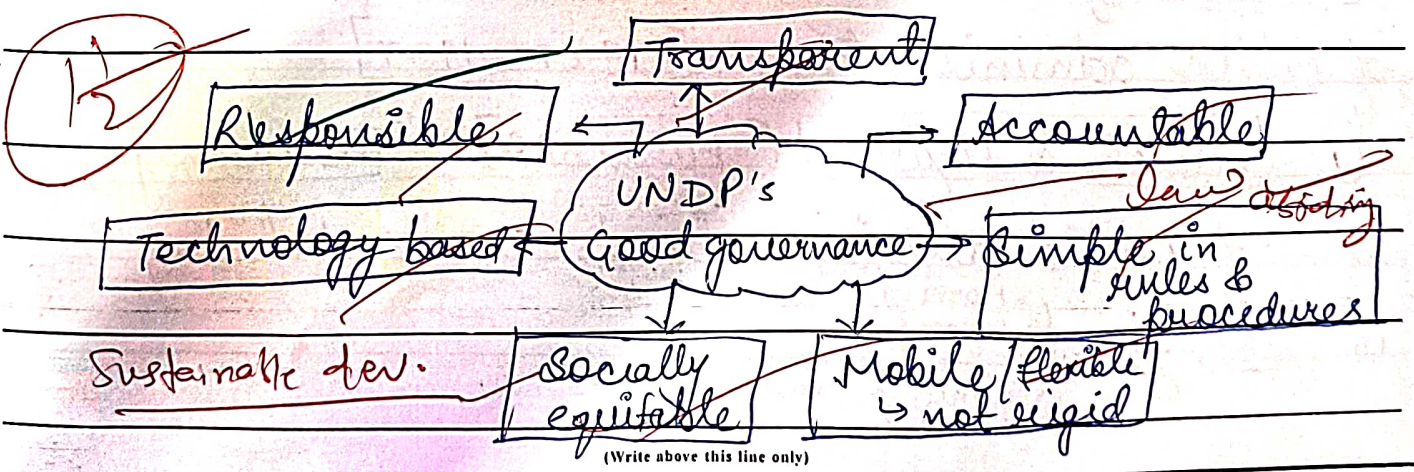 Transparent
Responsible
Accountable
UNDP's
Good governance
Law abiding
Technology based
Simple in
rules &
procedures
Sustainable dev.
Socially
equitable
Mobile/flexible
↳ not rigid
(Write above this line only)